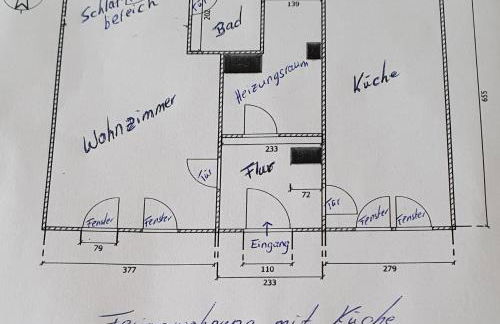 Schlaf-
bereich
Tür
202
Bad
139
Heizungsraum
Küche
655
Wohnzimmer
233
Flur
Tür
72
Tür
Fenster
Fenster
Fenster
Fenster
Eingang
79
377
110
279
233
Ferienwohnung mit Küche